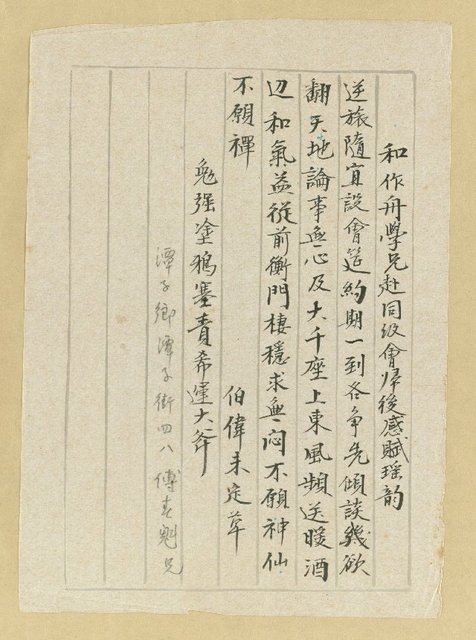 和作舟學兄赴同級會歸後感賦瑶韵
逆旅隨宜設會筵約期一到各争先傾談幾欲
翻天地論事無心及大千座上東風頻送暖酒
边和氣益從前衡門棲穩求無悶不願神仙
不願禪
伯偉未定草
勉强塗鴉塞責希運大斧
潭子鄉潭子街四八傅春魁兄